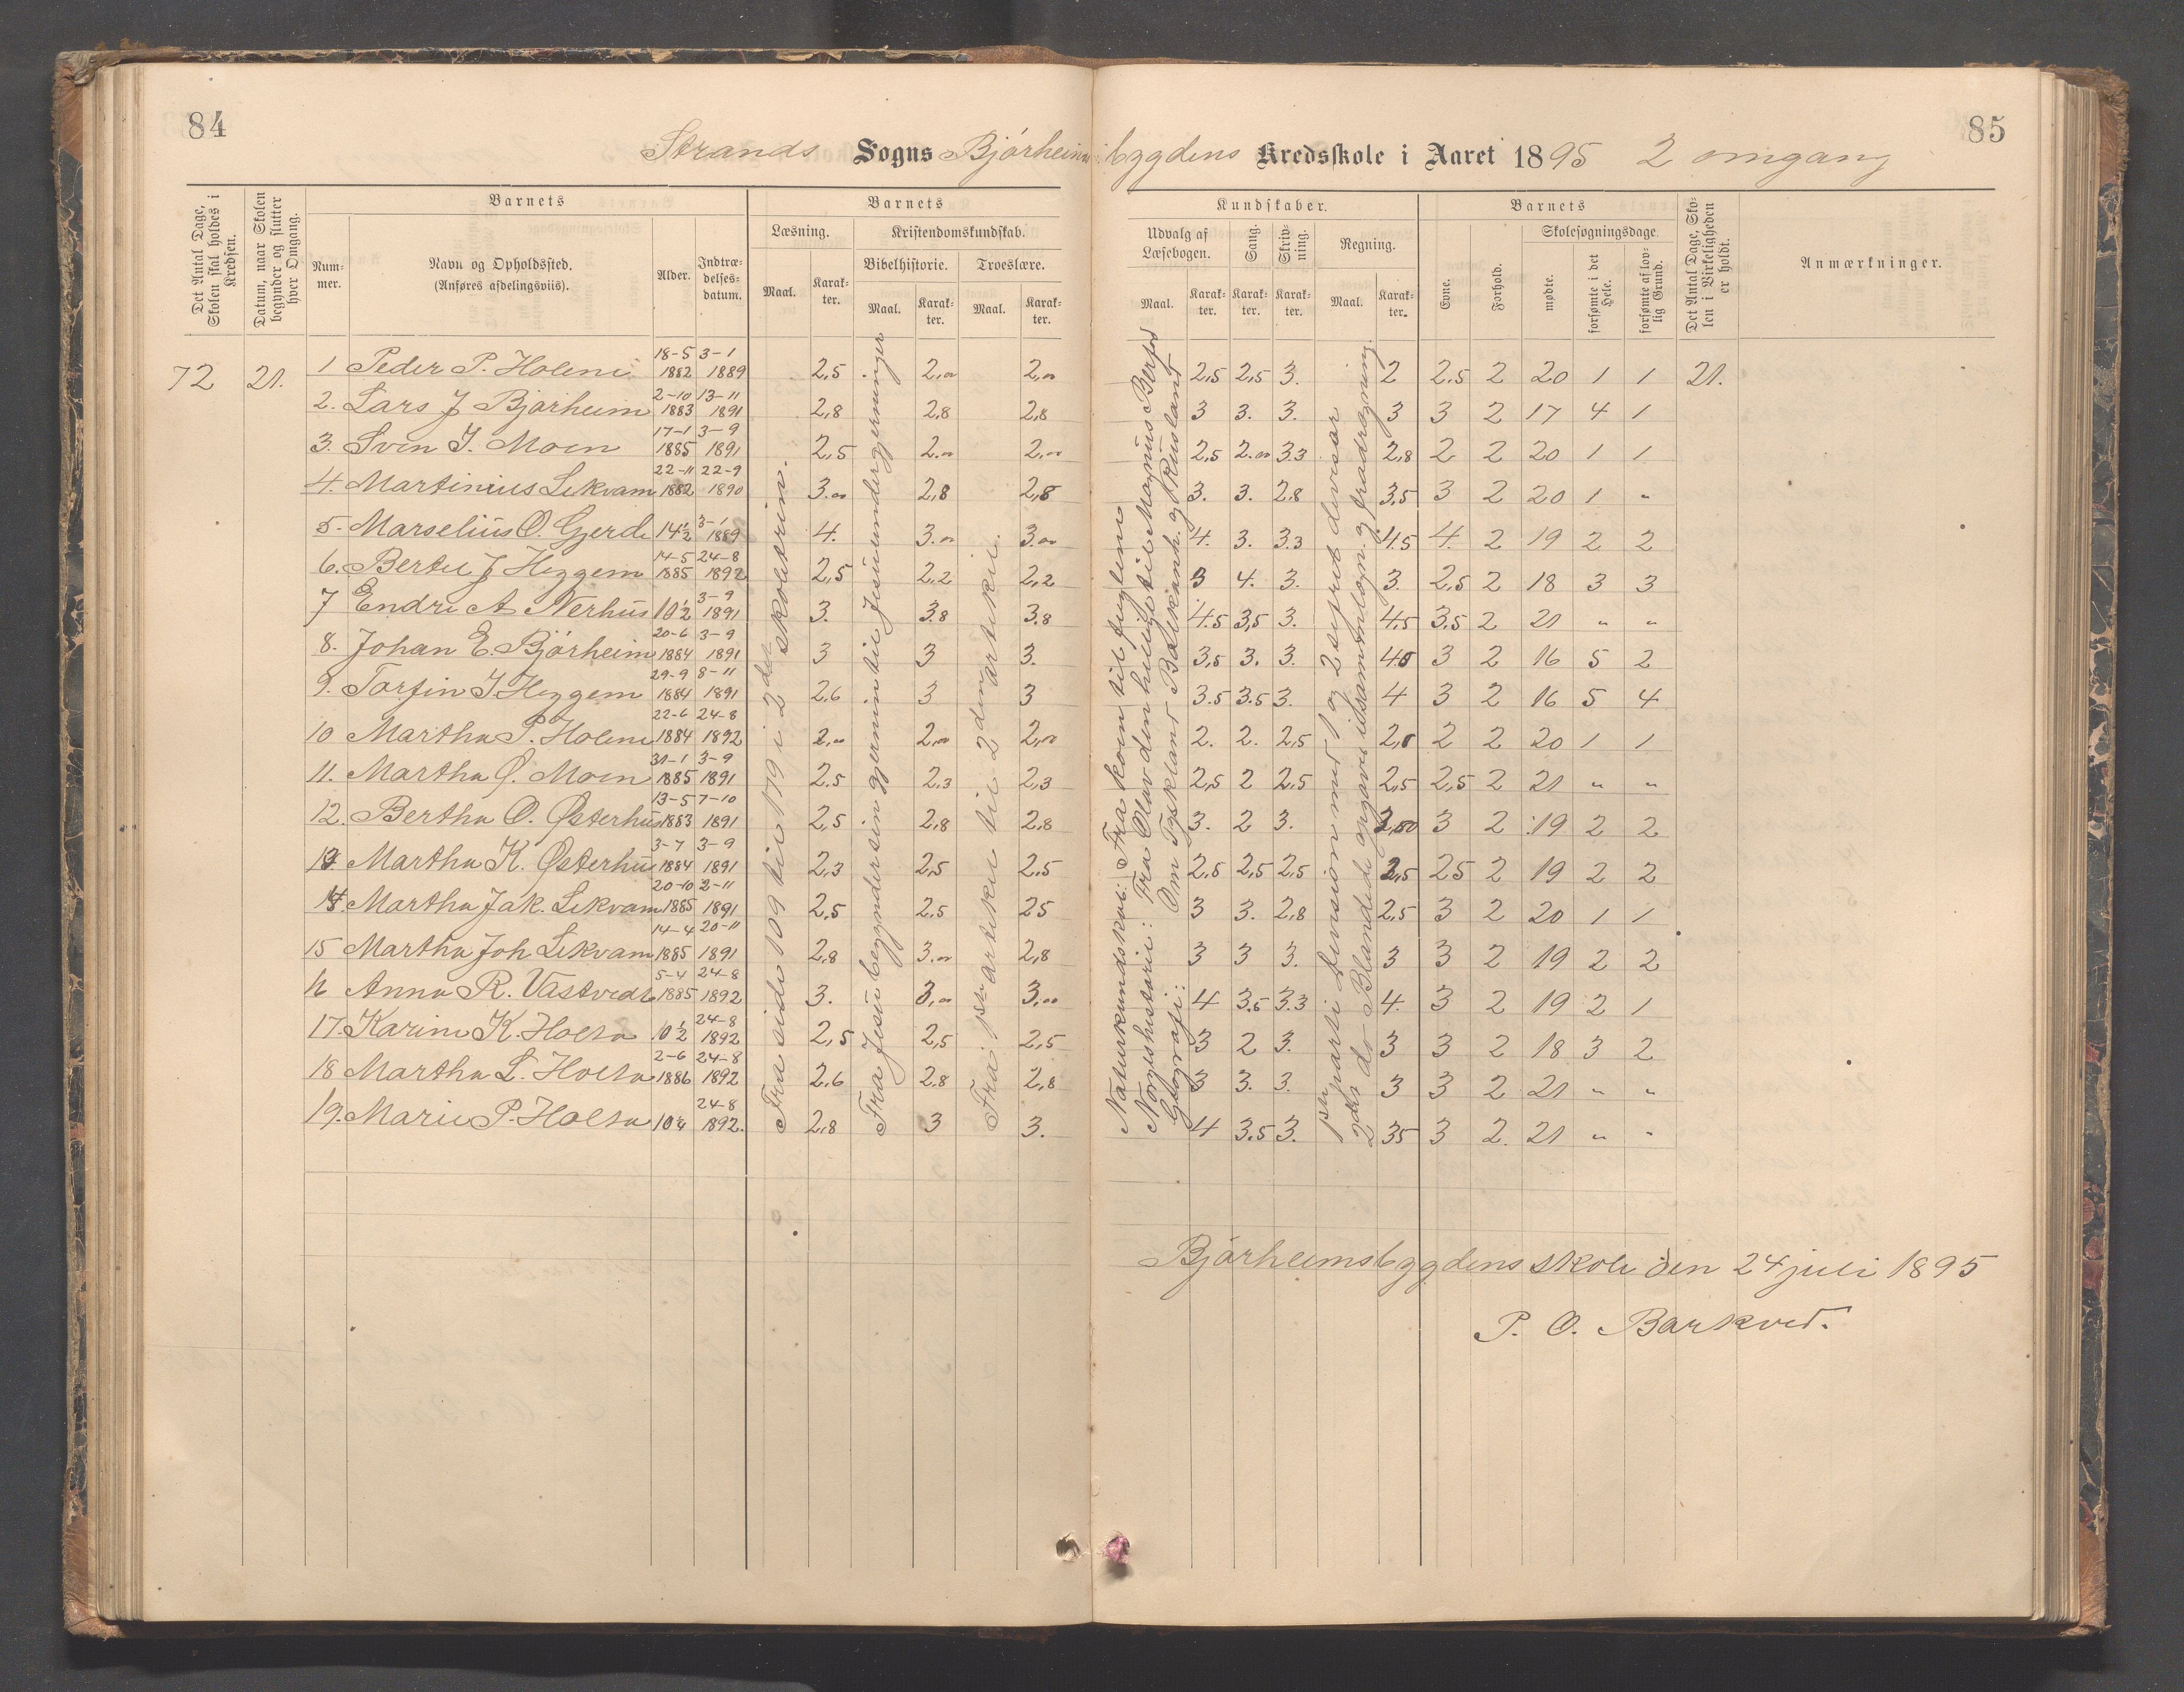 84
85
Strands Sogns Bjørheimsbygdens Kredsskole i Aaret 1895 2 omgang
Det Antal Dage, Skolen skal holdes i Kredsen.
Datum, naar Skolen begynder og slutter hver Omgang.
Barnets
Nummer.
Navn og Opholdssted. (Anføres afdelingsviis).
Alder.
Indtrædelsesdatum.
Barnets
Læsning.
Maal.
Karakter.
Kristendomskundskab.
Bibelhistorie.
Maal.
Karakter.
Troeslære.
Maal.
Karakter.
Kundskaber.
Udvalg af Læsebogen.
Maal.
Karakter.
Sang.
Karakter.
Skrivning.
Karakter.
Regning.
Maal.
Karakter.
Barnets
Evne.
Forhold.
Skolesøgningsdage.
mødte.
forsømte i det Hele.
forsømte af lovlig Grund.
Det Antal Dage, Skolen i Virkeligheden er holdt.
Anmærkninger.
72 21. 1 Peder P. Holene 18-5 1882 3-1 1889 2,5 2,00 2,00 2,5 2,5 3. 2 2.5 2 20 1 1 21.
2. Lars J Bjørheim 2-10 1883 13-11 1891 2,8 2,8 2,8 3 3. 3. 3 3 2 17 4 1
3. Sven I. Moen 17-1 1885 3-9 1891 2,5 2.00 2,00 2,5 2.00 3.3 2,8 2 2 20 1 1
4. Martinius Lekvam 22-11 1882 22-9 1890 3.00 2,8 2,8 3. 3. 2.8 3.5 3 2 20 1 "
5. Marselius O. Gjerde 14½ 3-1 1889 4. 3.00 3.00 4. 3. 3.3 4.5 4. 2 19 2 2
6. Bertel J Heggem 14-5 1885 24-8 1892 2,5 2,2 2,2 3 4. 3. 3. 2,5 2 18 3 3
7 Endre A Nerhus 10½ 3-9 1891 3. 3.8 3.8 4.5 3,5 3. 4.5 3.5 2 21 " "
8. Johan E. Bjørheim 20-6 1884 3-9 1891 3 3 3. 3,5 3. 3. 4.5 3 2 16 5 2
9. Torfin I. Heggem 29-9 1884 8-11 1891 2.6 3 3 3.5 3.5 3. 4 3 2 16 5 4
10 Martha P. Holene 22-6 1884 24-8 1892 2,00 2,00 2,00 2. 2. 2,5 2,8 2 2 20 1 1
11. Martha Ø. Moen 31-1 1885 3-9 1891 2.5 2,3 2,3 2,5 2 2,5 2,5 2,5 2 21 " "
12. Bertha O. Østerhus 13-5 1883 7-10 1891 2,5 2,8 2,8 3. 2 3. 3,00 3 2 19 2 2
13 Martha K. Østerhus 3-7 1884 3-9 1891 2,3 2,5 2.5 2,5 2,5 2,5 2,5 25 2 19 2 2
14. Martha Jak. Lekvam 20-10 1885 2-11 1891 2,5 2,5 25 3 3. 2,8 2,5 3 2 20 1 1
15 Martha Joh Lekvam 14-4 1885 20-11 1891 2,8 3.00 2,8 3 3 3. 3 3 2 19 2 2
16 Anna R. Vastvedt 5-4 1885 24-8 1892 3. 3,00 3,00 4 3.5 3.3 4. 3 2 19 2 1
17. Karine K. Holta 10½ 24-8 1892 2,5 2,5 2,5 3 2 3. 3 3 2 18 3 2
18 Martha L. Holta 2-6 1886 24-8 1892 2.6 2.8 2,8 3 3. 3. 3 3 2 21 " "
19. Marie P. Holta 10¼ 24-8 1892. 2,8 3 3. 4 3.5 3. 35 3 2. 21 " "
Fra side 109 til 179 i 2det skoletrin.
Fra Jesu begynder sin gjerning til Jesu undergjerninger
Fra 1ste artikel til 2den artikel.
Naturkundskab: Fra koen til fuglene
Norgeshistorie: Fra Olav den hellige til Magnus Berfod
Geografi: Om Tyskland Balkanh. og Rusland
1ste parti division med 1 og 2 sifret divisor
2det do Blandede opgaver i sammenlægn. og fradragning
Bjørheimsbygdens skole den 24 juli 1895
P. O. Barkved.